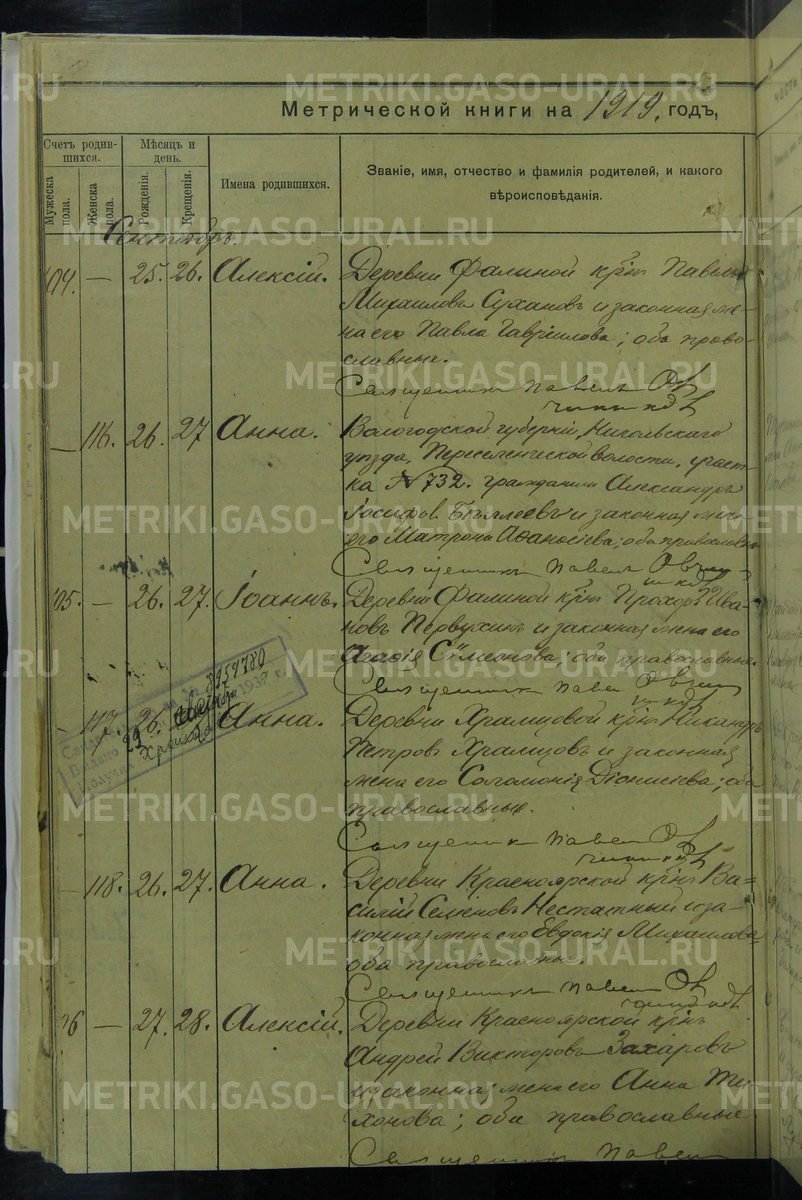 METRIKI.GASO-URAL.RU
Метрической книги на 1919, годъ,
Счетъ родив-
шихся.
Мѣсяцъ и
день.
Мужеска
пола.
Женска
пола.
Рожденія.
Крещенія.
Имена родившихся.
Званіе, имя, отчество и фамилія родителей, и какого
вѣроисповѣданія.
Сентябрь.
104. — 25. 26. Алексій. Деревни Фалиной крѣн Павелъ
Михаиловъ Сухановъ и законная же-
на его Павла Гавріилова; оба право-
славные.
Священникъ Павелъ
— 116. 26. 27 Анна. Вологодской губерніи, Никольскаго
уѣзда, Переселенческой волости, участ-
ка № 732. гражданинъ Александръ
Іосифов. Бѣляевъ и законная жена
его Матрона Аѳанасіева; оба православные
Священникъ Павелъ
105. — 26. 27. Іоаннъ. Деревни Фалиной крѣн Прохоръ Ива-
новъ Первухинъ и законная жена его
Агаѳія Сѵмеонова; оба православные.
Священникъ Павел
— 117. 26. Анна. Деревни Храмцовой крѣн Никандръ
Петровъ Храмцовъ и законная
жена его Соломонія Діонисіева; оба
православные.
8959780
1939 г.
Священникъ Павел
— 118. 26. 27. Анна. Деревни Красноярской крѣн Ва-
силій Семеновъ Нестатный и за-
конная жена его Евдокія Михаилова
оба православные.
Священникъ Павел
106 — 27. 28. Алексій. Деревни Красноярской крѣн
Андрей Викторовъ Захаровъ
и законная жена его Анна Ти-
хонова; оба православные
Священникъ Павелъ